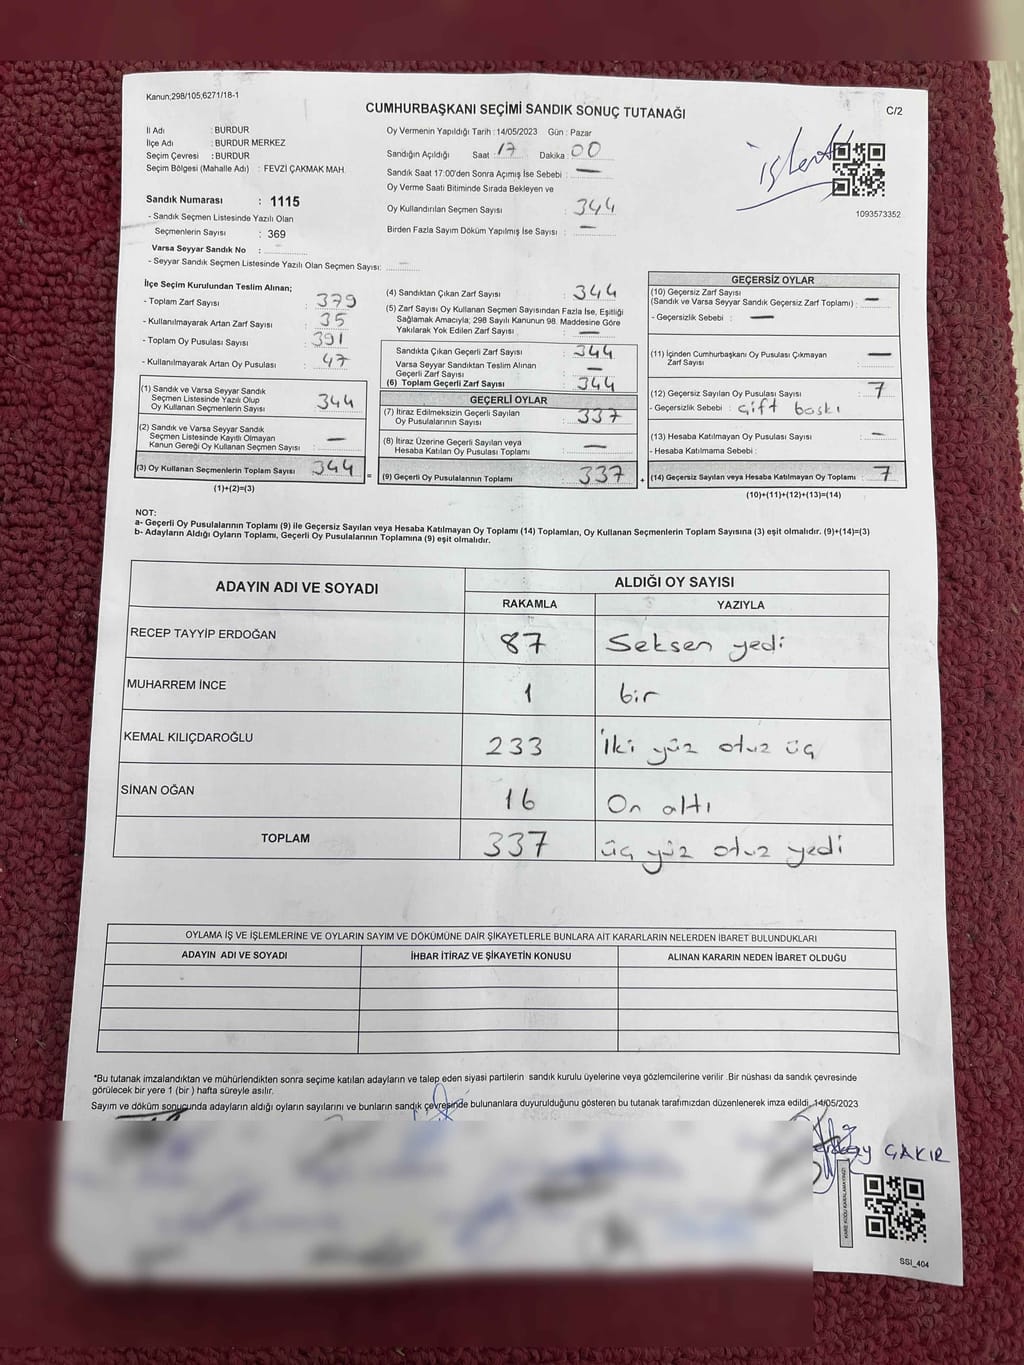 Kanun;298/105,6271/18-1
CUMHURBAŞKANI SEÇİMİ SANDIK SONUÇ TUTANAĞI
C/2
İl Adı : BURDUR
İlçe Adı : BURDUR MERKEZ
Seçim Çevresi : BURDUR
Seçim Bölgesi (Mahalle Adı) : FEVZİ ÇAKMAK MAH.
Sandık Numarası : 1115
- Sandık Seçmen Listesinde Yazılı Olan
Seçmenlerin Sayısı : 369
Varsa Seyyar Sandık No :
- Seyyar Sandık Seçmen Listesinde Yazılı Olan Seçmen Sayısı:
Oy Vermenin Yapıldığı Tarih : 14/05/2023 Gün : Pazar
Sandığın Açıldığı Saat : 17 Dakika : 00
Sandık Saat 17:00'den Sonra Açımış İse Sebebi : —
Oy Verme Saati Bitiminde Sırada Bekleyen ve
Oy Kullandırılan Seçmen Sayısı : 344
Birden Fazla Sayım Döküm Yapılmış İse Sayısı : —
işlendi
1093573352
İlçe Seçim Kurulundan Teslim Alınan;
- Toplam Zarf Sayısı : 379
- Kullanılmayarak Artan Zarf Sayısı : 35
- Toplam Oy Pusulası Sayısı : 391
- Kullanılmayarak Artan Oy Pusulası : 47
(1) Sandık ve Varsa Seyyar Sandık
Seçmen Listesinde Yazılı Olup
Oy Kullanan Seçmenlerin Sayısı : 344
(2) Sandık ve Varsa Seyyar Sandık
Seçmen Listesinde Kayıtlı Olmayan
Kanun Gereği Oy Kullanan Seçmen Sayısı : —
(3) Oy Kullanan Seçmenlerin Toplam Sayısı : 344 =
(1)+(2)=(3)
(4) Sandıktan Çıkan Zarf Sayısı : 344
(5) Zarf Sayısı Oy Kullanan Seçmen Sayısından Fazla İse, Eşitliği
Sağlamak Amacıyla; 298 Sayılı Kanunun 98. Maddesine Göre
Yakılarak Yok Edilen Zarf Sayısı : —
Sandıkta Çıkan Geçerli Zarf Sayısı : 344
Varsa Seyyar Sandıktan Teslim Alınan
Geçerli Zarf Sayısı : —
(6) Toplam Geçerli Zarf Sayısı : 344
GEÇERLİ OYLAR
(7) İtiraz Edilmeksizin Geçerli Sayılan
Oy Pusulalarının Sayısı : 337
(8) İtiraz Üzerine Geçerli Sayılan veya
Hesaba Katılan Oy Pusulası Toplamı : —
(9) Geçerli Oy Pusulalarının Toplamı : 337 +
GEÇERSİZ OYLAR
(10) Geçersiz Zarf Sayısı
(Sandık ve Varsa Seyyar Sandık Geçersiz Zarf Toplamı) : —
- Geçersizlik Sebebi : —
(11) İçinden Cumhurbaşkanı Oy Pusulası Çıkmayan
Zarf Sayısı : —
(12) Geçersiz Sayılan Oy Pusulası Sayısı : 7
- Geçersizlik Sebebi : çift baskı
(13) Hesaba Katılmayan Oy Pusulası Sayısı : —
- Hesaba Katılmama Sebebi :
(14) Geçersiz Sayılan veya Hesaba Katılmayan Oy Toplamı : 7
(10)+(11)+(12)+(13)=(14)
NOT:
a- Geçerli Oy Pusulalarının Toplamı (9) ile Geçersiz Sayılan veya Hesaba Katılmayan Oy Toplamı (14) Toplamları, Oy Kullanan Seçmenlerin Toplam Sayısına (3) eşit olmalıdır. (9)+(14)=(3)
b- Adayların Aldığı Oyların Toplamı, Geçerli Oy Pusulalarının Toplamına (9) eşit olmalıdır.
ADAYIN ADI VE SOYADI
ALDIĞI OY SAYISI
RAKAMLA YAZIYLA
RECEP TAYYİP ERDOĞAN 87 Seksen yedi
MUHARREM İNCE 1 bir
KEMAL KILIÇDAROĞLU 233 İki yüz otuz üç
SİNAN OĞAN 16 On altı
TOPLAM 337 üç yüz otuz yedi
OYLAMA İŞ VE İŞLEMLERİNE VE OYLARIN SAYIM VE DÖKÜMÜNE DAİR ŞİKAYETLERLE BUNLARA AİT KARARLARIN NELERDEN İBARET BULUNDUKLARI
ADAYIN ADI VE SOYADI İHBAR İTİRAZ VE ŞİKAYETİN KONUSU ALINAN KARARIN NEDEN İBARET OLDUĞU
*Bu tutanak imzalandıktan ve mühürlendikten sonra seçime katılan adayların ve talep eden siyasi partilerin sandık kurulu üyelerine veya gözlemcilerine verilir .Bir nüshası da sandık çevresinde
görülecek bir yere 1 (bir ) hafta süreyle asılır.
Sayım ve döküm sonucunda adayların aldığı oyların sayılarını ve bunların sandık çevresinde bulunanlara duyurulduğunu gösteren bu tutanak tarafımızdan düzenlenerek imza edildi. 14/05/2023
ÇAKIR
KARE KODU KARALAMAYINIZ!
SSI_404